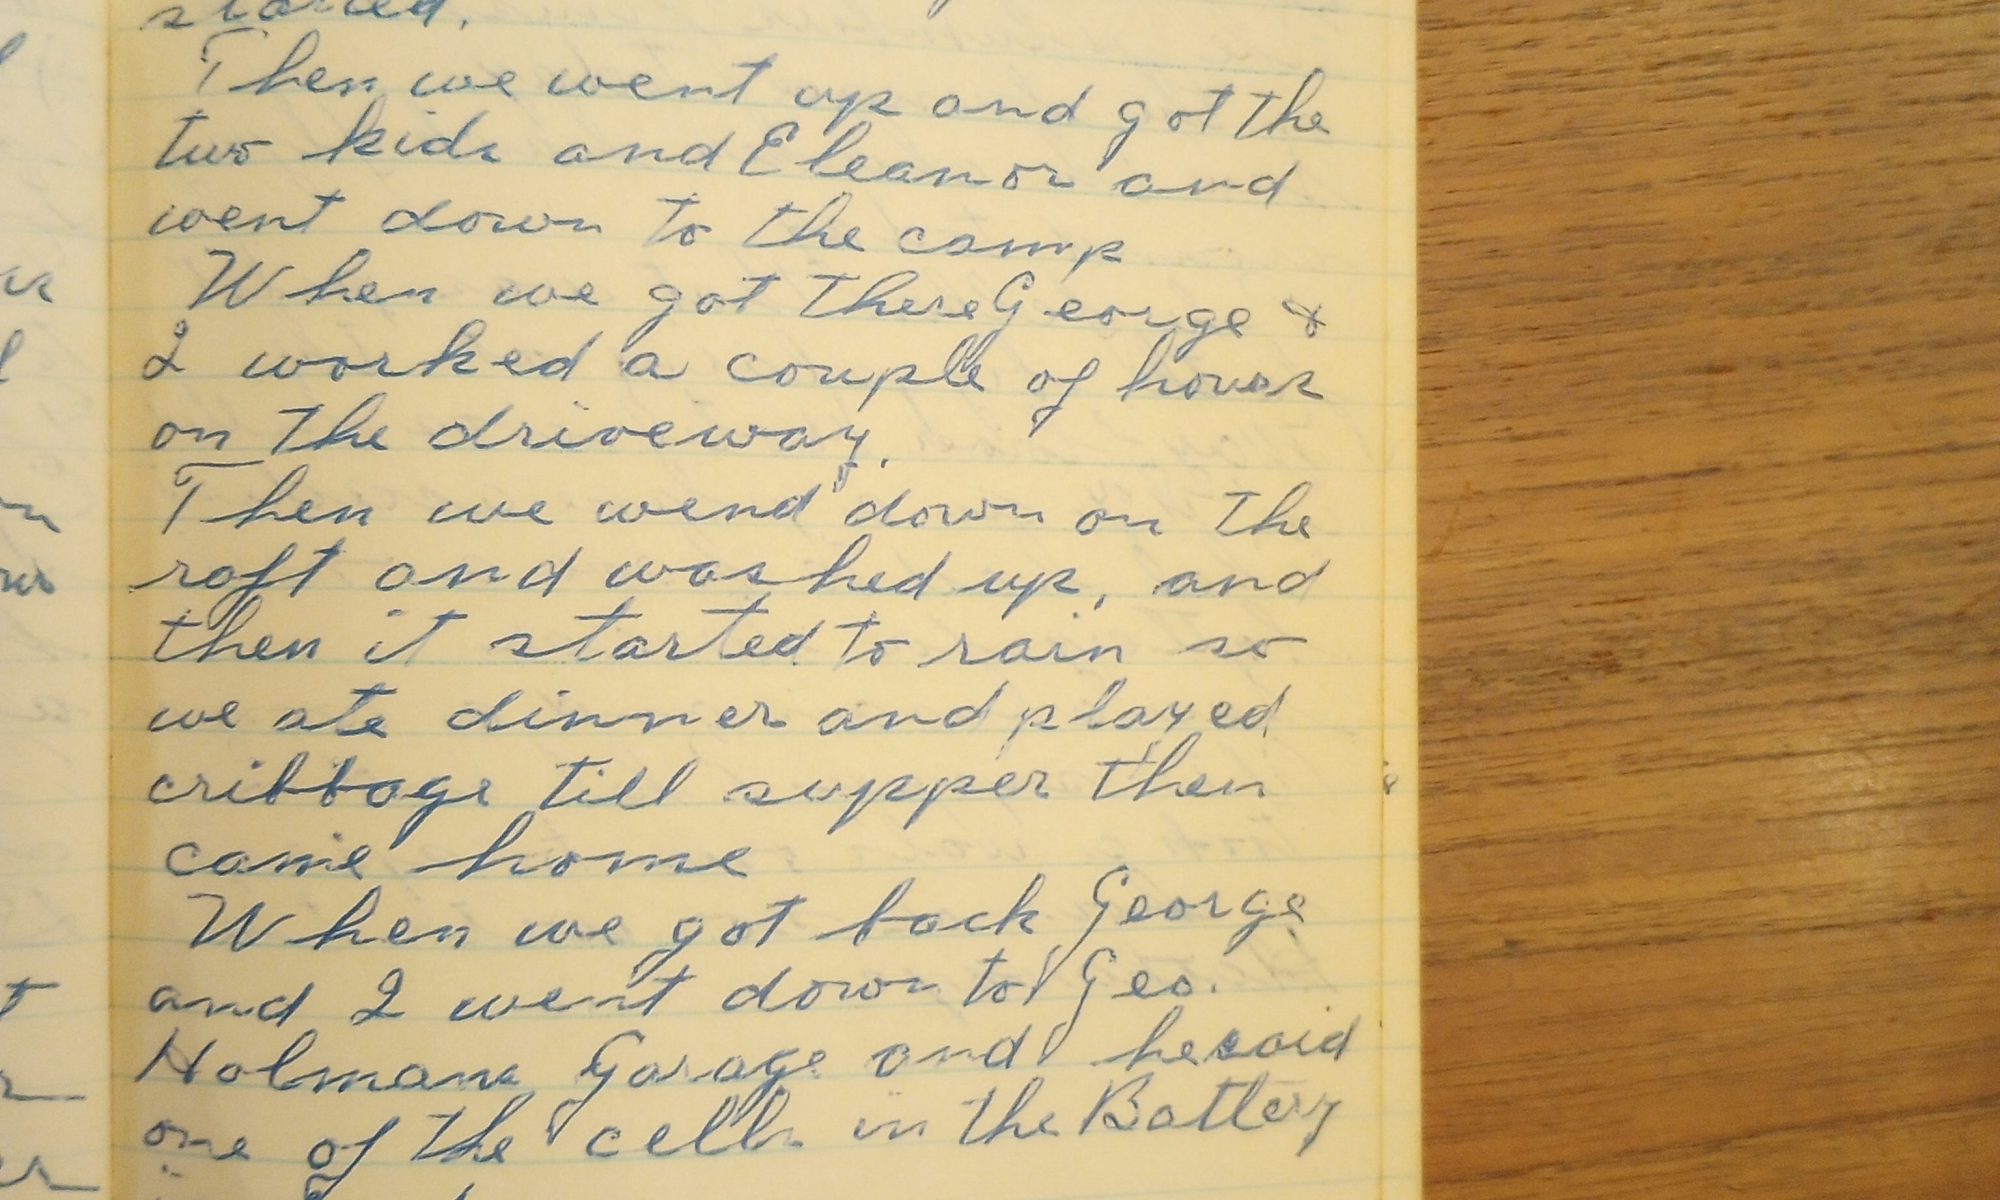 started.
Then we went up and got the
two kids and Eleanor and
went down to the camp
When we got there George &
I worked a couple of hours
on the driveway.
Then we wend down on the
raft and washed up, and
then it started to rain so
we ate dinner and played
cribbage till supper then
came home
When we got back George
and I went down to Geo.
Holmans Garage and he said
one of the cells in the Battery